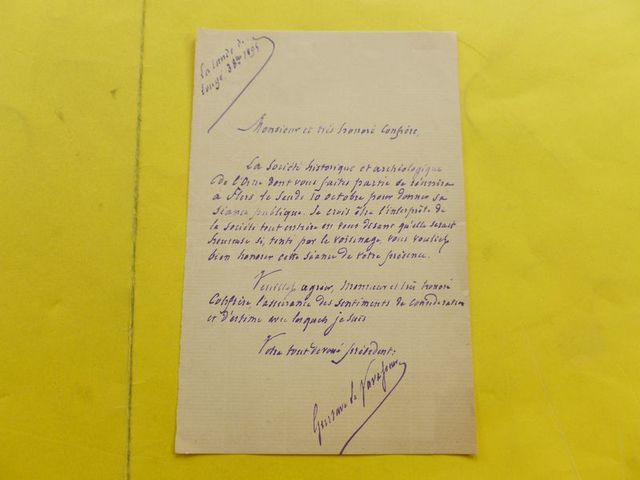 La Lande de
Lougé, 3 8bre 1895
Monsieur et très honoré Confrère,
La Société historique et archéologique
de l'Orne dont vous faites partie se réunira
à Flers le Jeudi 10 octobre pour donner sa
séance publique. Je crois être l'interprète de
la Société tout entière en vous disant qu'elle serait
heureuse si, tenté par le voisinage, vous vouliez
bien honorer cette séance de votre présence.
Veuillez agréer, Monsieur et très honoré
Confrère l'assurance des sentiments de considération
et d'estime avec lesquels je suis
Votre tout dévoué président:
Gustave Le Vavasseur